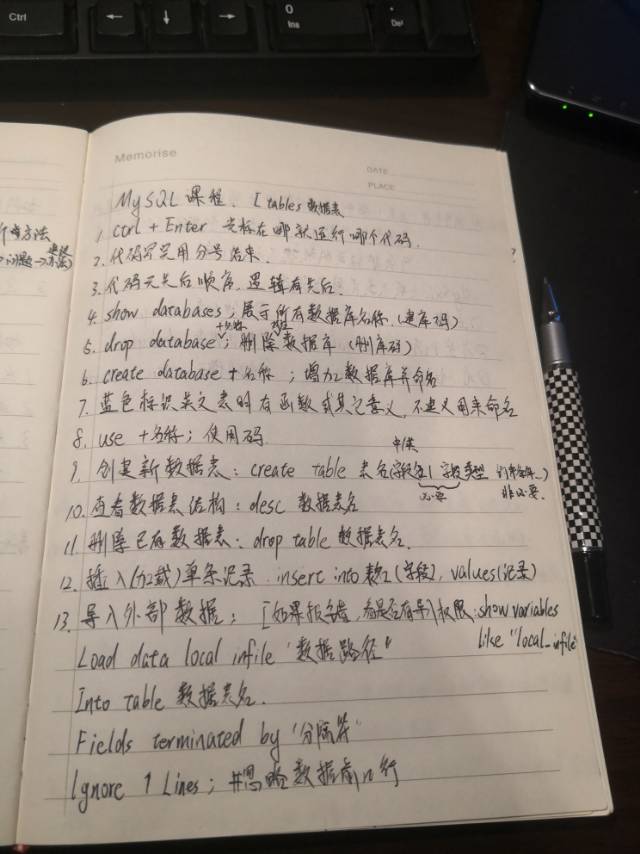 Ctrl
0
Ins
.
Del
Memorise
DATE
PLACE
MySQL 课程. [tables 数据表
1. ctrl + Enter 光标在哪就运行哪个代码.
2. 代码写完用分号结束.
3. 代码无先后顺序, 逻辑有先后.
4. show databases; 展示所有数据库名称 (建库码)
5. drop database +名称; 删除数据库 (删库码)
6. create database + 名称 ; 增加数据库并命名
7. 蓝色标识英文表明有函数或其它意义, 不建议用来命名
8. use +名称; 使用码
9. 创建新数据表: create table 表名(字段名1 字段类型 约束条件...)
必要 非必要.
10. 查看数据表结构: desc 数据表名
11. 删除已有数据表: drop table 数据表名.
12. 插入(加载)单条记录. insert into 表名(字段), values(记录)
13. 导入外部数据: [如果报错, 看是否有导入权限: show variables
like "local_infile"
Load data local infile '数据路径"
Into table 数据表名.
Fields terminated by '分隔符"
Ignore 1 Lines; #忽略数据前n行
方法
建议
问题→